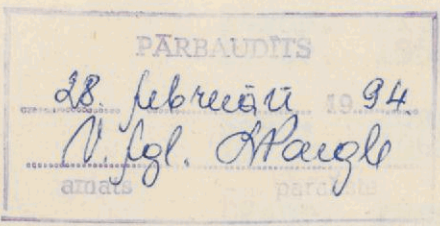 PĀRBAUDĪTS
28. februārī 1994.
V. fgl.
amats paraksts